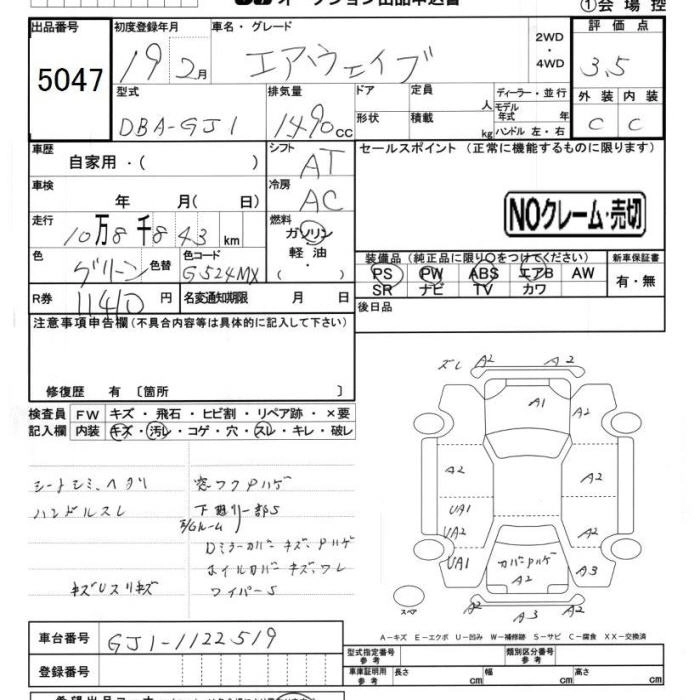 オークション出品申込書
①会場控
出品番号 初度登録年月 車名・グレード 2WD・4WD 評価点
5047 19 2月 エアウェイブ 3.5
型式 排気量 ドア 定員 人 ディーラー・並行
モデル年式 年
外装 内装
DBA-GJ1 1490cc 形状 積載 kg ハンドル 左・右 C C
車歴 シフト セールスポイント(正常に機能するものに限ります)
自家用・( ) AT
車検 冷房
年 月( 日) AC
NOクレーム・売切
走行 燃料
10万8千843km ガソリン
軽油
・( )
色 色替 色コード
グリーン G524MX
装備品(純正品に限り○をつけてください) 新車保証書
PS PW ABS エアB AW 有・無
SR ナビ TV カワ
R券 11410円 名変通知期限 月 日
後日品
注意事項申告欄(不具合内容等は具体的に記入して下さい)
修復歴 有 〔箇所 〕
検査員 FW キズ・飛石・ヒビ割・リペア跡・×要
記入欄 内装 キズ・汚レ・コゲ・穴・スレ・キレ・破レ
シートシミ、ヘタリ 窓ワクPハゲ
ハンドルスレ 下廻リ一部S
E/Gルーム
Dミラーカバーキズ、Pハゲ
ホイルカバーキズ、ワレ
キズUスリキズ ワイパーS
ズレ A2 A2
A1 A2
A2 A2
UA1
UA2 A2
UA1 カバーPハゲ A3
A2
スペア A2 A3 A2
A-キズ E-エクボ U-凹み W-補修跡 S-サビ C-腐食 XX-交換済
車台番号 GJ1-1122519
型式指定番号 参考 類別区分番号 参考
登録番号
車庫証明用 参考 長さ cm 幅 cm 高さ cm